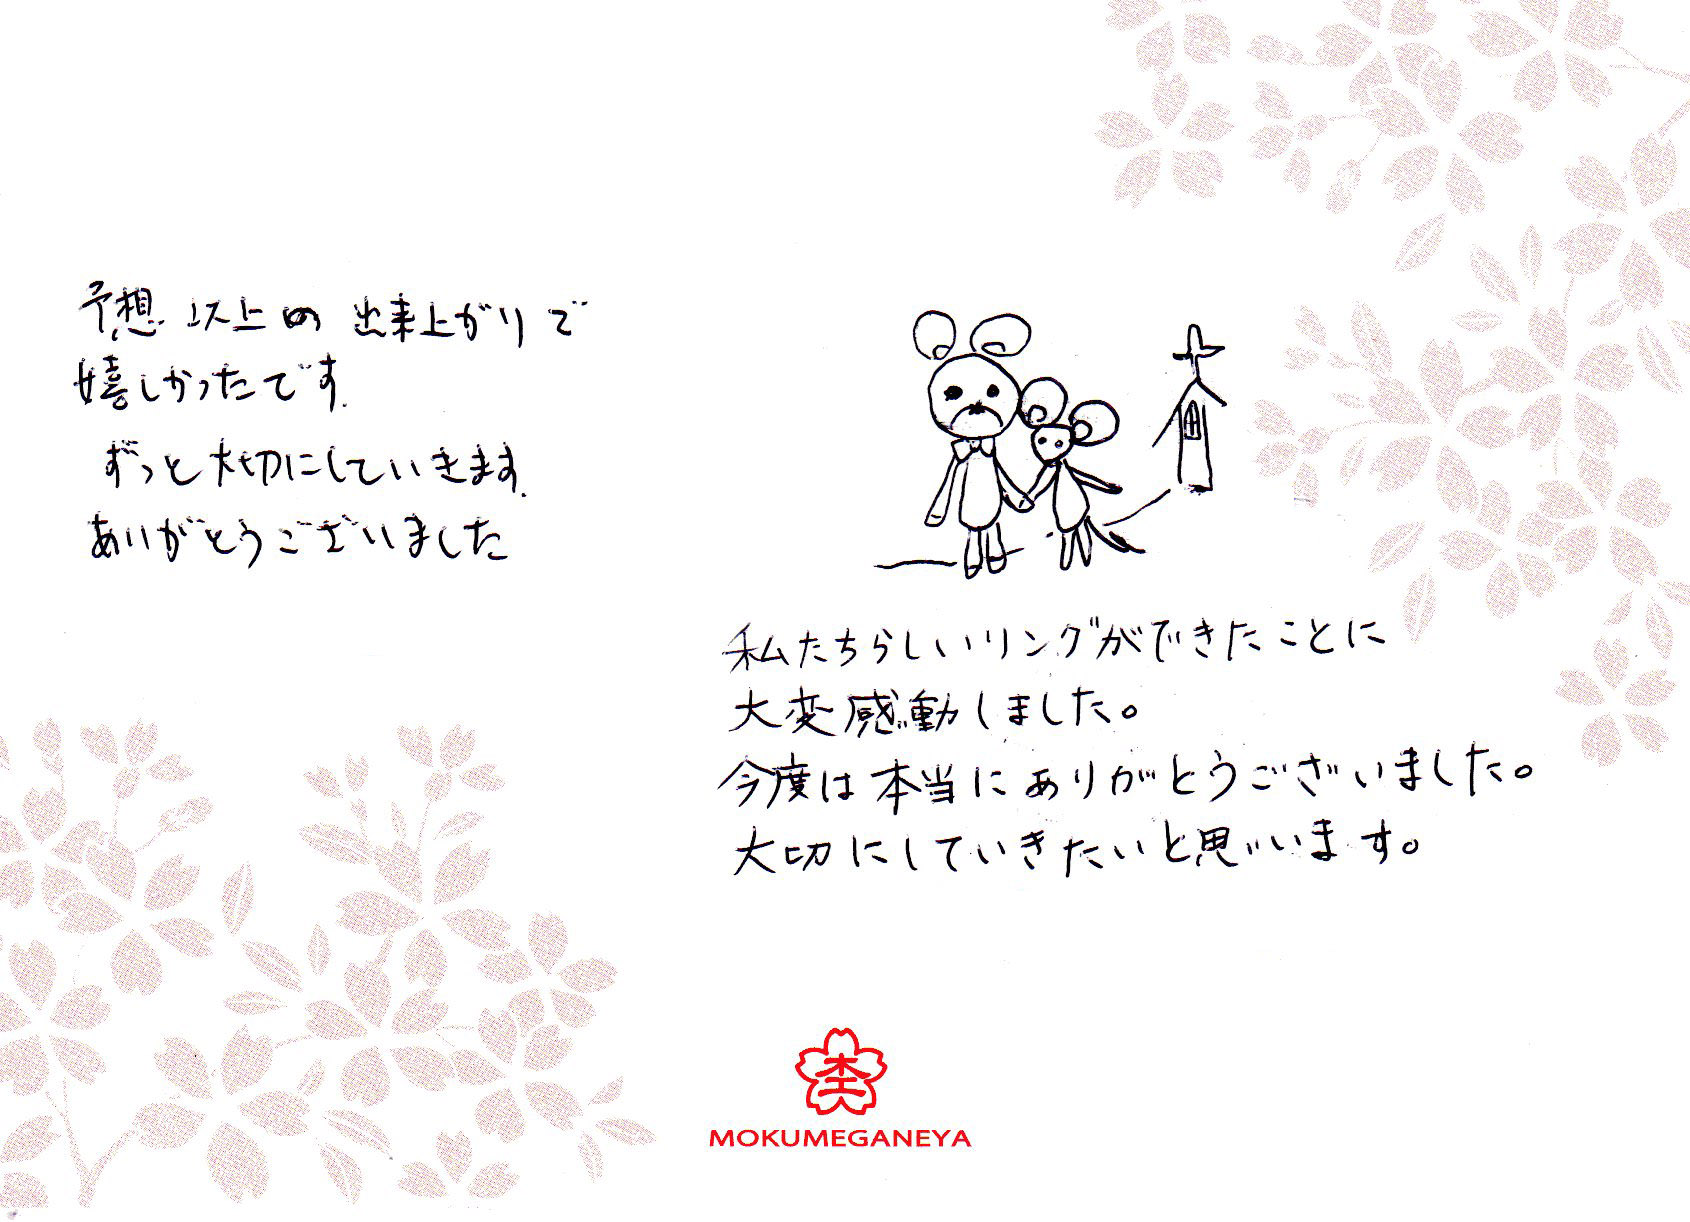 予想以上の出来上がりで
嬉しかったです.
ずっと大切にしていきます.
ありがとうございました
私たちらしいリングができたことに
大変感動しました。
今度は本当にありがとうございました。
大切にしていきたいと思います。
MOKUMEGANEYA